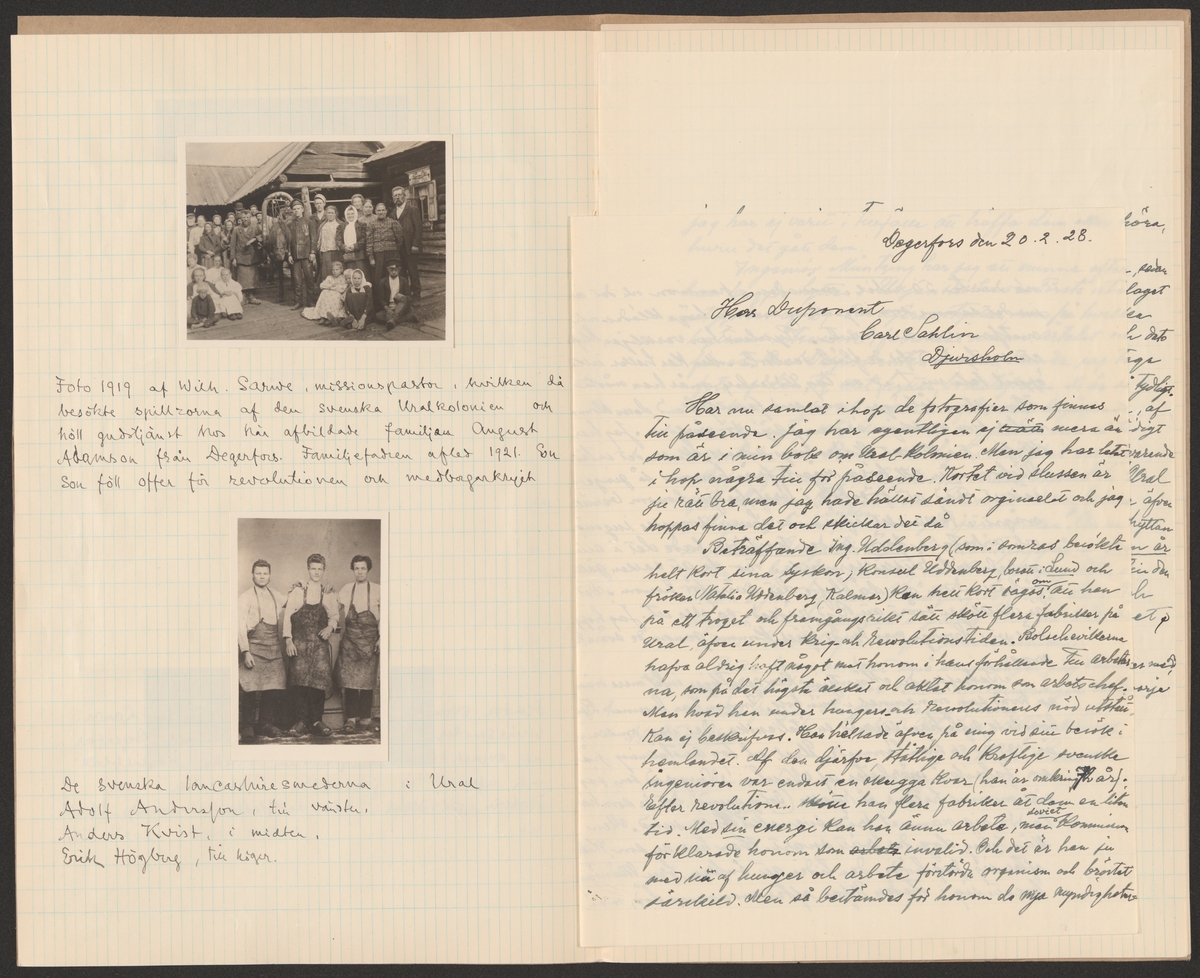 Foto 1919 af Wilh. Sarwe, missionspastor, hvilken då
besökte spillrorna af den svenska Uralkolonien och
höll gudstjänst hos här afbildade familjen August
Adamson från Degerfors. Familjefadren afled 1921. En
Son föll offer för revolutionen och medborgarkrigit
De svenska lancashiresmederna i Ural
Adolf Andersson, till vänster.
Anders Kvist, i midten.
Erik Högberg, till höger.
Degerfors den 20.2.28.
Herr Disponent
Carl Sahlin
Djursholm
Har nu samlat ihop de fotografier som finnas
till påseende. Jag har egentligen ej mera än
som är i min bok om Ural-Kolonien. Men jag har letat
i hop några till för påseende. Kortet vid slussen är
ju rätt bra, men jag hade hällst sändt orginalet och jag
hoppas finna det och skickar det då
Beträffande Ing. Uddenberg (som i somras besökte
helt kort sina syskon, Konsul Uddenberg, bosatt i Lund och
fröken Natalia Uddenberg, Kalmar) kan helt kort sägas om, att han
på ett troget och framgångsrikt sätt skött flera fabriker på
Ural, äfven under krig och Revolutionstiden. Bolschevikerna
hafva aldrig haft något mot honom i hans förhållande till arbetar
na, som på det högsta älskat och aktat honom som arbetschef.
Men hvad han under hungers- och Revolutionens nöd utstått
kan ej beskrifvas. Han hälsade äfven på mig vid sitt besök i
hemlandet. Af den djärfve, ståtlige och kraftige svenske
ingeniören var endast en skugga kvar (han är omkring är).
Efter revolution. skötte han flera fabriker åt dem en liten
tid. Med sin energi kan han ännu arbeta, men soviet Kommissn
förklarade honom som arbets invalid. Och det är han ju
med sin af hunger och arbete förstörda orginism och bröstet
särskild. Men så bestämdes för honom de nya myndigheter
höra,
sedan
laget
dels
tydligt.
af
digt
varande
Ural
äfven
hyttan
är
den
et